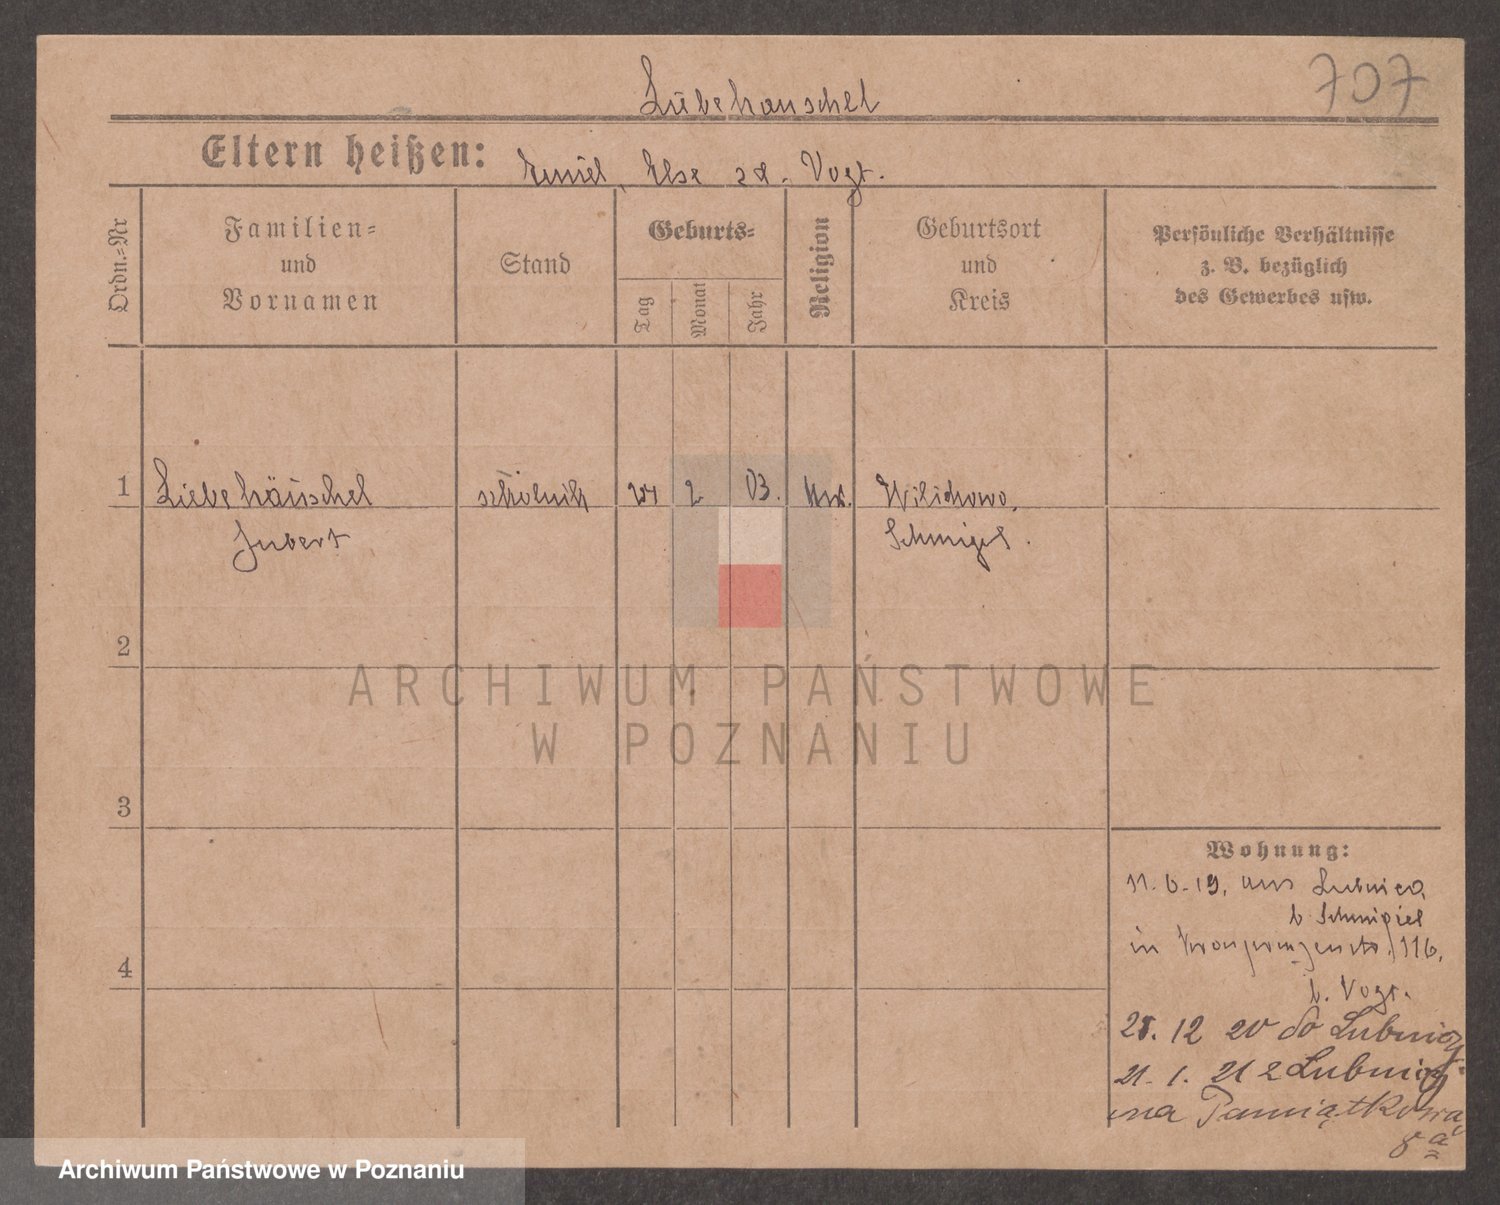 Liebehauschel
707
Eltern heißen: Emiel, Else zd. Vogt.
Ordn.=Nr
Familien=
und
Vornamen
Stand
Geburts=
Tag
Monat
Jahr
Religion
Geburtsort
und
Kreis
Persönliche Verhältnisse
z. B. bezüglich
des Gewerbes usw.
1 Liebehäuschel 2 03. Wilichowo,
Schmigel.
2
3
4
Wohnung:
11. 6. 19, aus Lubnica,
b Schmigiel
in Kronprinzenstr. 116,
b. Vogt.
12 20 do Lubnicy
21. 1. 21 z Lubnicy
na Pamiątkową
8 a
ARCHIWUM PAŃSTWOWE
W POZNANIU
Archiwum Państwowe w Poznaniu